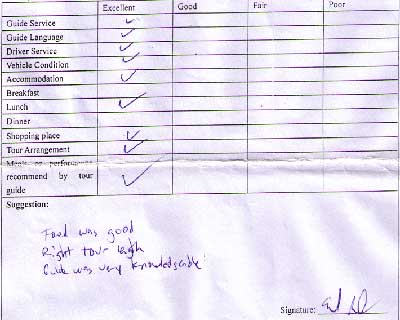 Excellent Good Fair Poor
Guide Service ✓
Guide Language ✓
Driver Service ✓
Vehicle Condition ✓
Accommodation ✓
Breakfast
Lunch ✓
Dinner
Shopping place ✓
Tour Arrangement ✓
Meals or performance
recommend by tour ✓
guide
Suggestion:
Food was good
Right tour length
Guide was very knowledgeable
Signature: